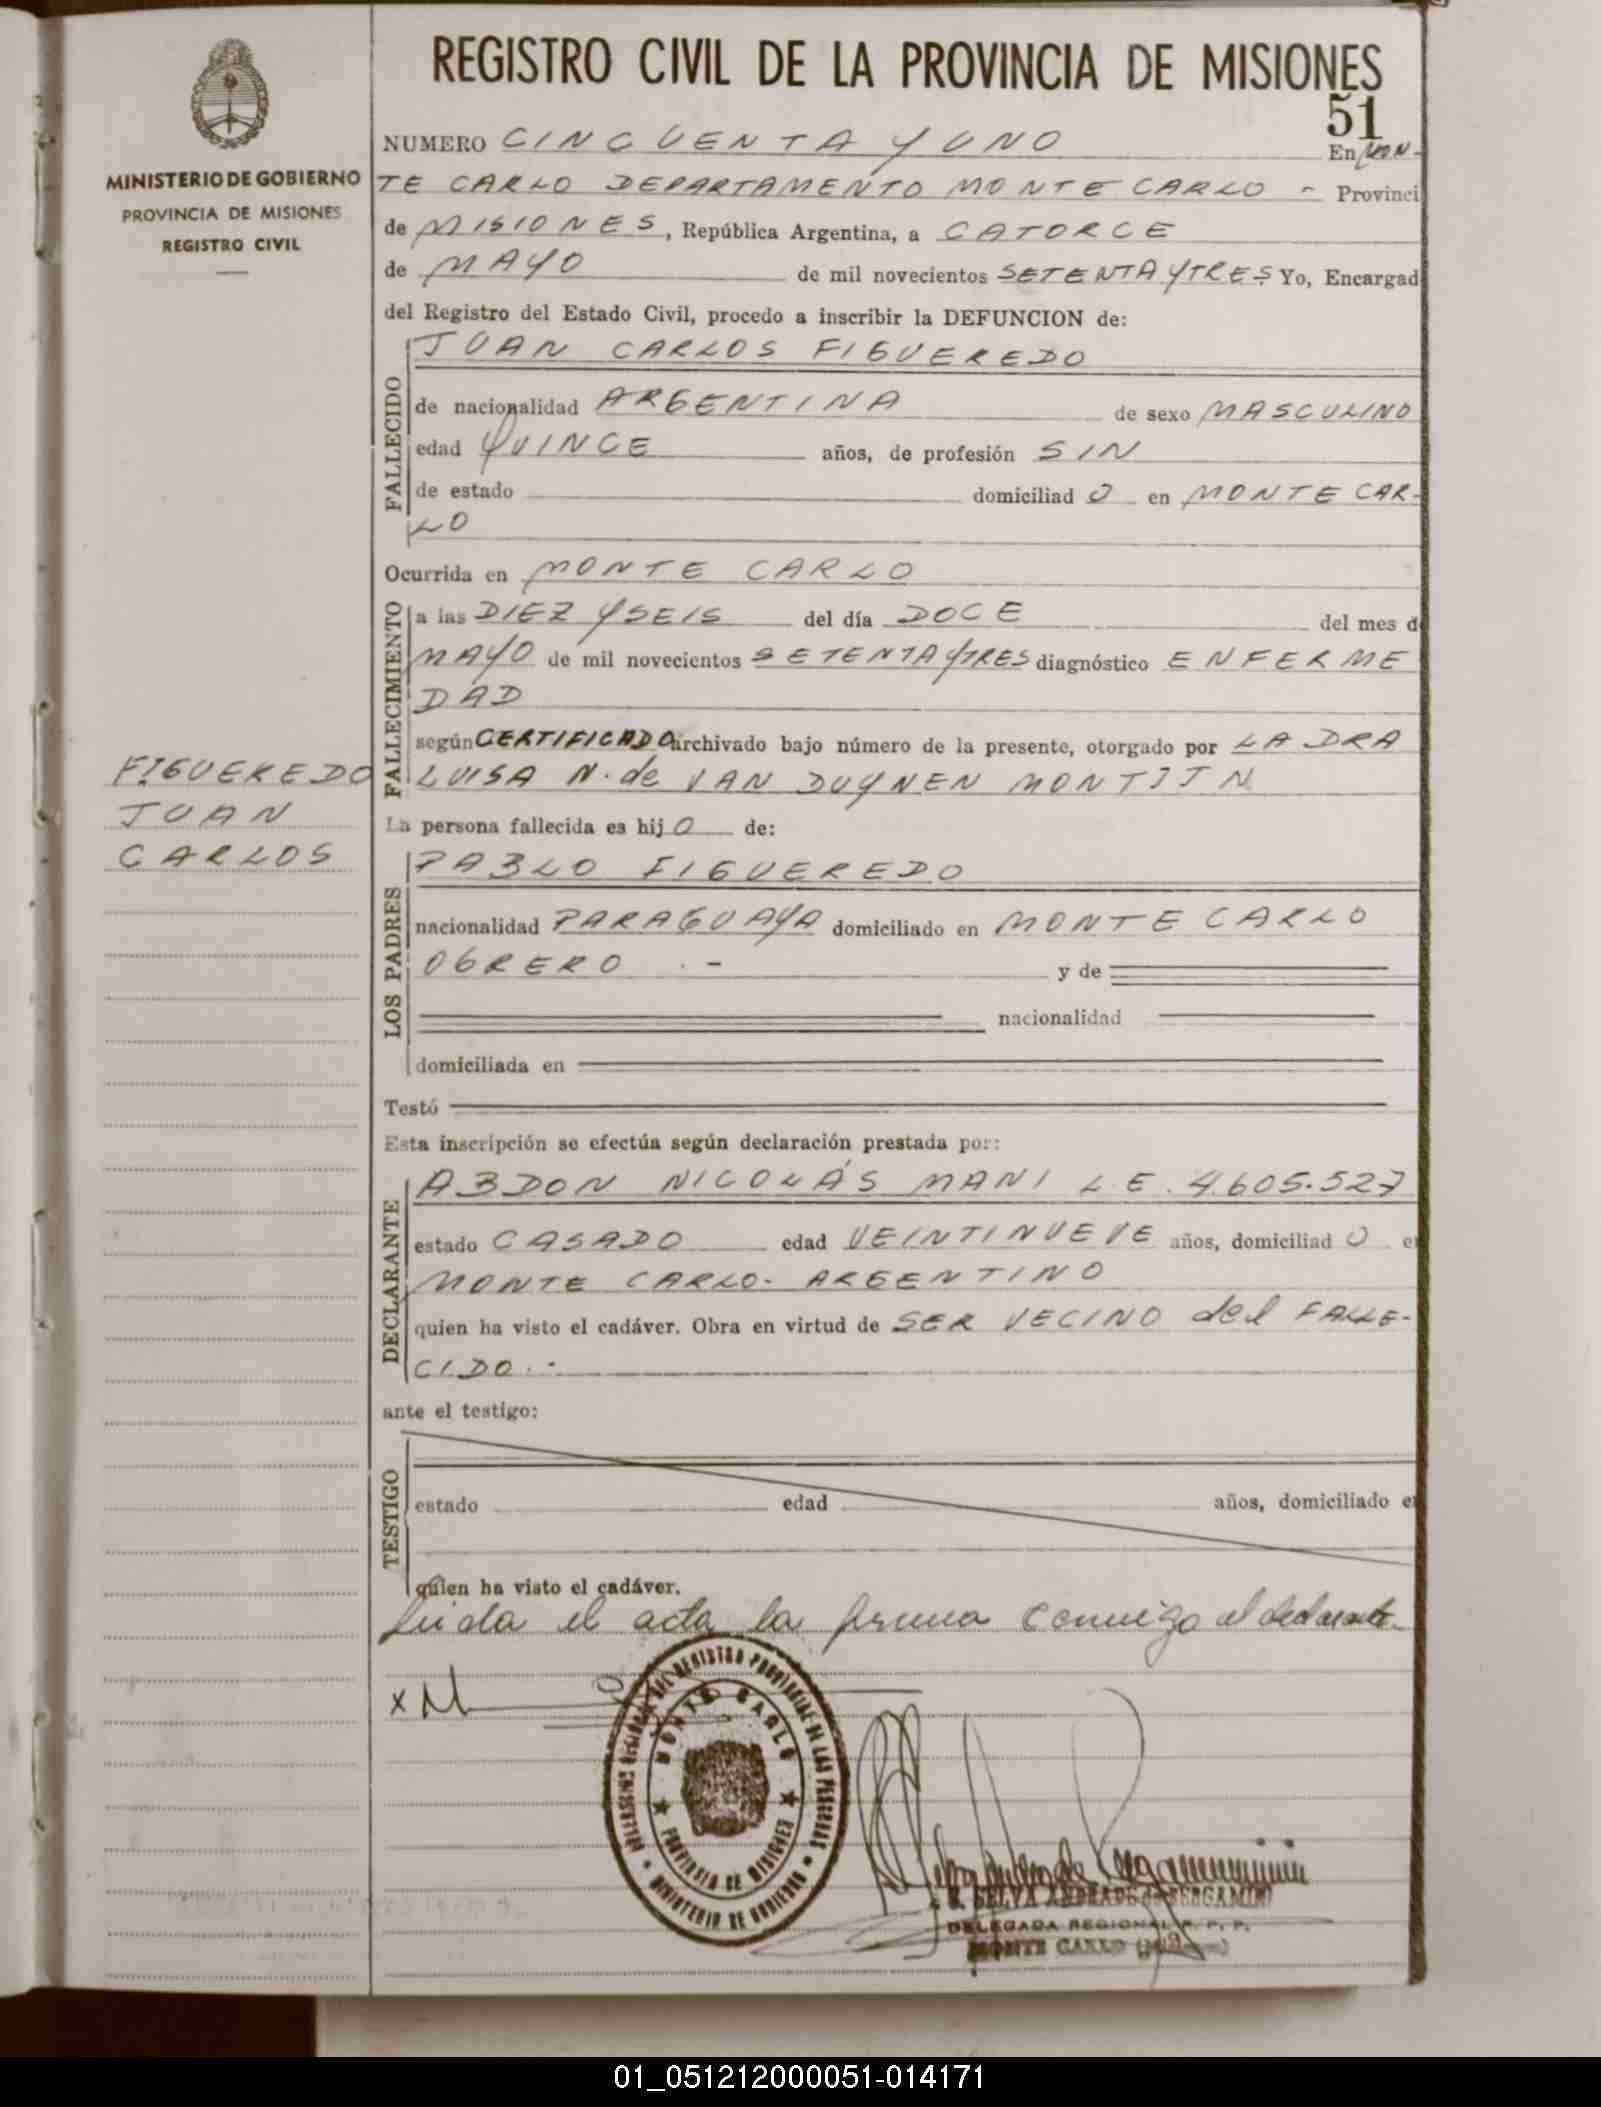 REGISTRO CIVIL DE LA PROVINCIA DE MISIONES
51
MINISTERIO DE GOBIERNO
PROVINCIA DE MISIONES
REGISTRO CIVIL
NUMERO CINCUENTA Y UNO En MON-
TE CARLO DEPARTAMENTO MONTE CARLO - Provinci
de MISIONES, República Argentina, a CATORCE
de MAYO de mil novecientos SETENTA Y TRES Yo, Encargad
del Registro del Estado Civil, procedo a inscribir la DEFUNCION de:
FALLECIDO
JUAN CARLOS FIGUEREDO
de nacionalidad ARGENTINA de sexo MASCULINO
edad QUINCE años, de profesión SIN
de estado domiciliad O en MONTE CAR-
LO
Ocurrida en MONTE CARLO
FALLECIMIENTO
a las DIEZ Y SEIS del día DOCE del mes d
MAYO de mil novecientos SETENTA Y TRES diagnóstico ENFERME
DAD
según CERTIFICADO archivado bajo número de la presente, otorgado por LA DRA
LUISA N. de VAN DUYNEN MONTIJN
FIGUEREDO
JUAN
CARLOS
La persona fallecida es hij O de:
LOS PADRES
PABLO FIGUEREDO
nacionalidad PARAGUAYA domiciliado en MONTE CARLO
OBRERO .- y de
nacionalidad
domiciliada en
Testó
Esta inscripción se efectúa según declaración prestada por:
DECLARANTE
ABDON NICOLÁS MANI L.E. 4.605.527
estado CASADO edad VEINTINUEVE años, domiciliad O e
MONTE CARLO- ARGENTINO
quien ha visto el cadáver. Obra en virtud de SER VECINO del FALLE-
CIDO.-
ante el testigo:
TESTIGO
estado edad años, domiciliado e
quien ha visto el cadáver.
Leida el acta la firma conmigo el declarante.
x
DEL REGISTRO PROVINCIAL DE LAS PERSONAS
MONTE CARLO
PROVINCIA DE MISIONES
MINISTERIO DE GOBIERNO
SELVA ANDRADE de BERGAMINI
DELEGADA REGIONAL R. P. P.
MONTE CARLO
01_051212000051-014171